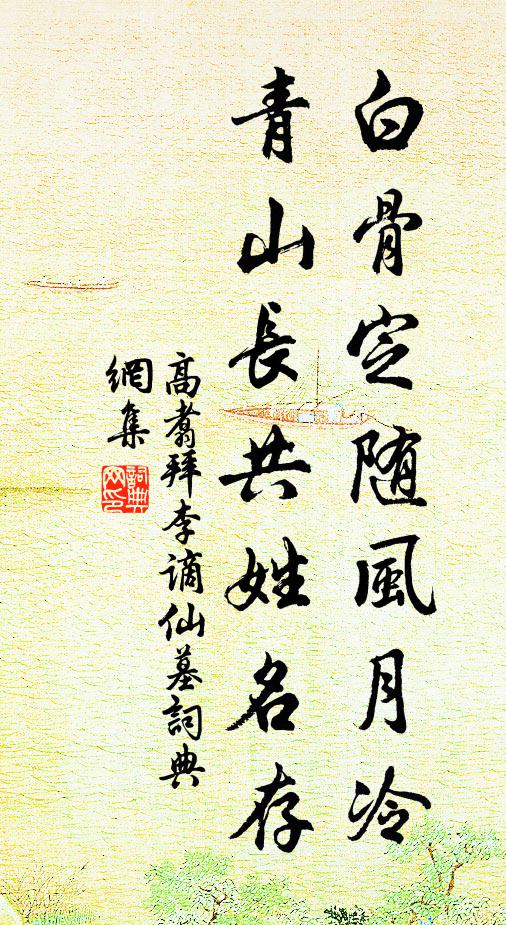 白骨定随風月冷
青山長共姓名存
高翥拜李谪仙墓詞典
網集
詞典網印